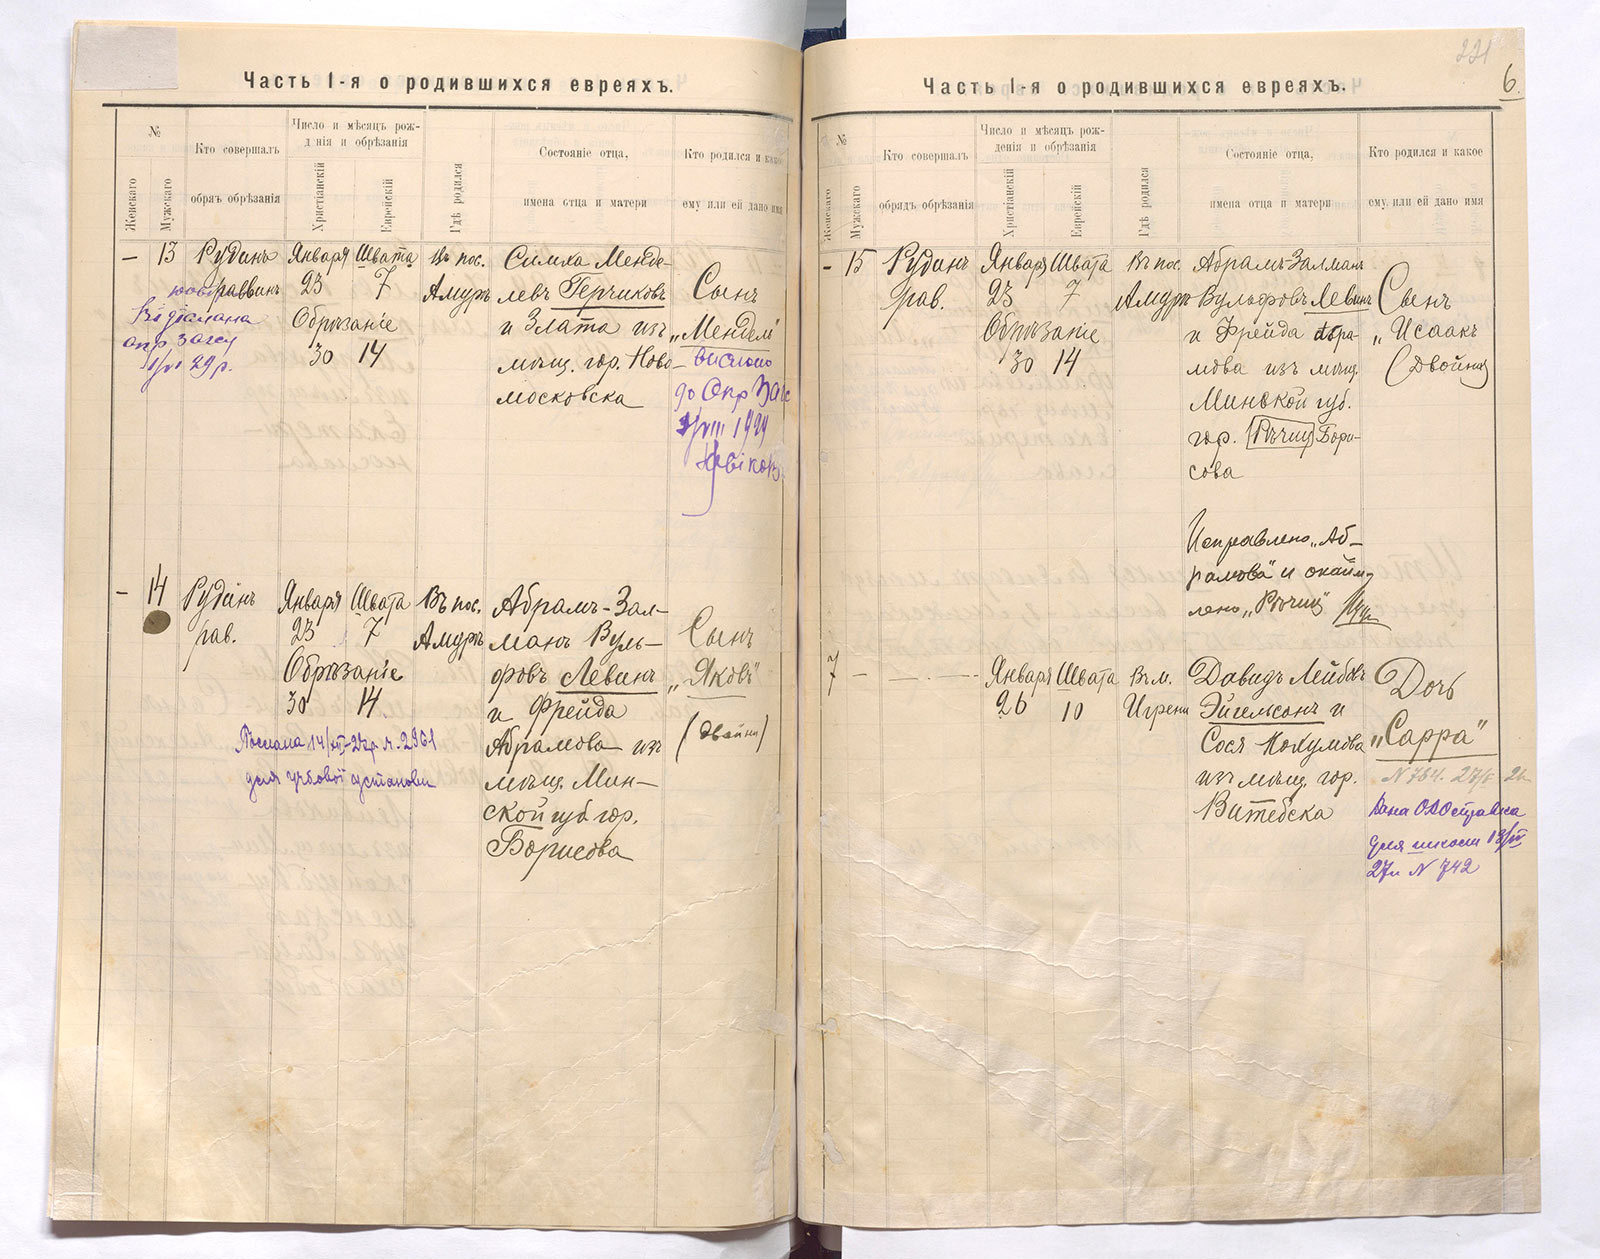 Часть 1-я о родившихся евреяхъ.
№
Женскаго
Мужскаго
Кто совершалъ
обрядъ обрѣзанія
Число и мѣсяцъ рож-
денія и обрѣзанія
Христіанскій
Еврейскій
Гдѣ родился
Состояніе отца,
имена отца и матери
Кто родился и какое
ему или ей дано имя
– 13 Рудинъ Января Швата Въ пос. Симха Менде-
раввинъ 23 7 Амуръ левъ Герчиковъ Сынъ
Обрѣзаніе и Злата изъ „Мендель"
30 14 мѣщ. гор. Ново-
московска
Видіслана
опр Загсу
29 р.
вислано
до Опр Загс
1/VIII 1929
– 14 Рудинъ Января Швата Въ пос. Абрамъ-Зал-
рав. 23 7 Амуръ манъ Вуль- Сынъ
Обрѣзаніе фовъ Левинъ „Яковъ"
30 14 и Фрейда
Абрамова изъ (двойни)
мѣщ. Мин-
ской губ гор.
Борисова
Послана 14/XII-27р. ч. 2961
для учбової установи
Часть 1-я о родившихся евреяхъ.
221
6.
№
Женскаго
Мужскаго
Кто совершалъ
обрядъ обрѣзанія
Число и мѣсяцъ рож-
денія и обрѣзанія
Христіанскій
Еврейскій
Гдѣ родился
Состояніе отца,
имена отца и матери
Кто родился и какое
ему или ей дано имя
– 15 Рудинъ Января Швата Въ пос. Абрамъ Залманъ
рав. 23 7 Амуръ Вульфовъ Левинъ Сынъ
Обрѣзаніе и Фрейда Абра- „Исаакъ
30 14 мова изъ мѣщ. (Двойни)
Минской губ.
гор. Рѣчиц Бори-
сова
Исправлено „Аб-
рамова" и окайм-
лено „Рѣчиц"
7 – – . – Января Швата Въ м. Давидъ Лейбовъ Дочь
26 10 Игрени Эйгельсонъ и
Сося Нохумова „Сарра"
изъ мѣщ. гор.
Витебска
N 784. 27/
для школи
27р N 742